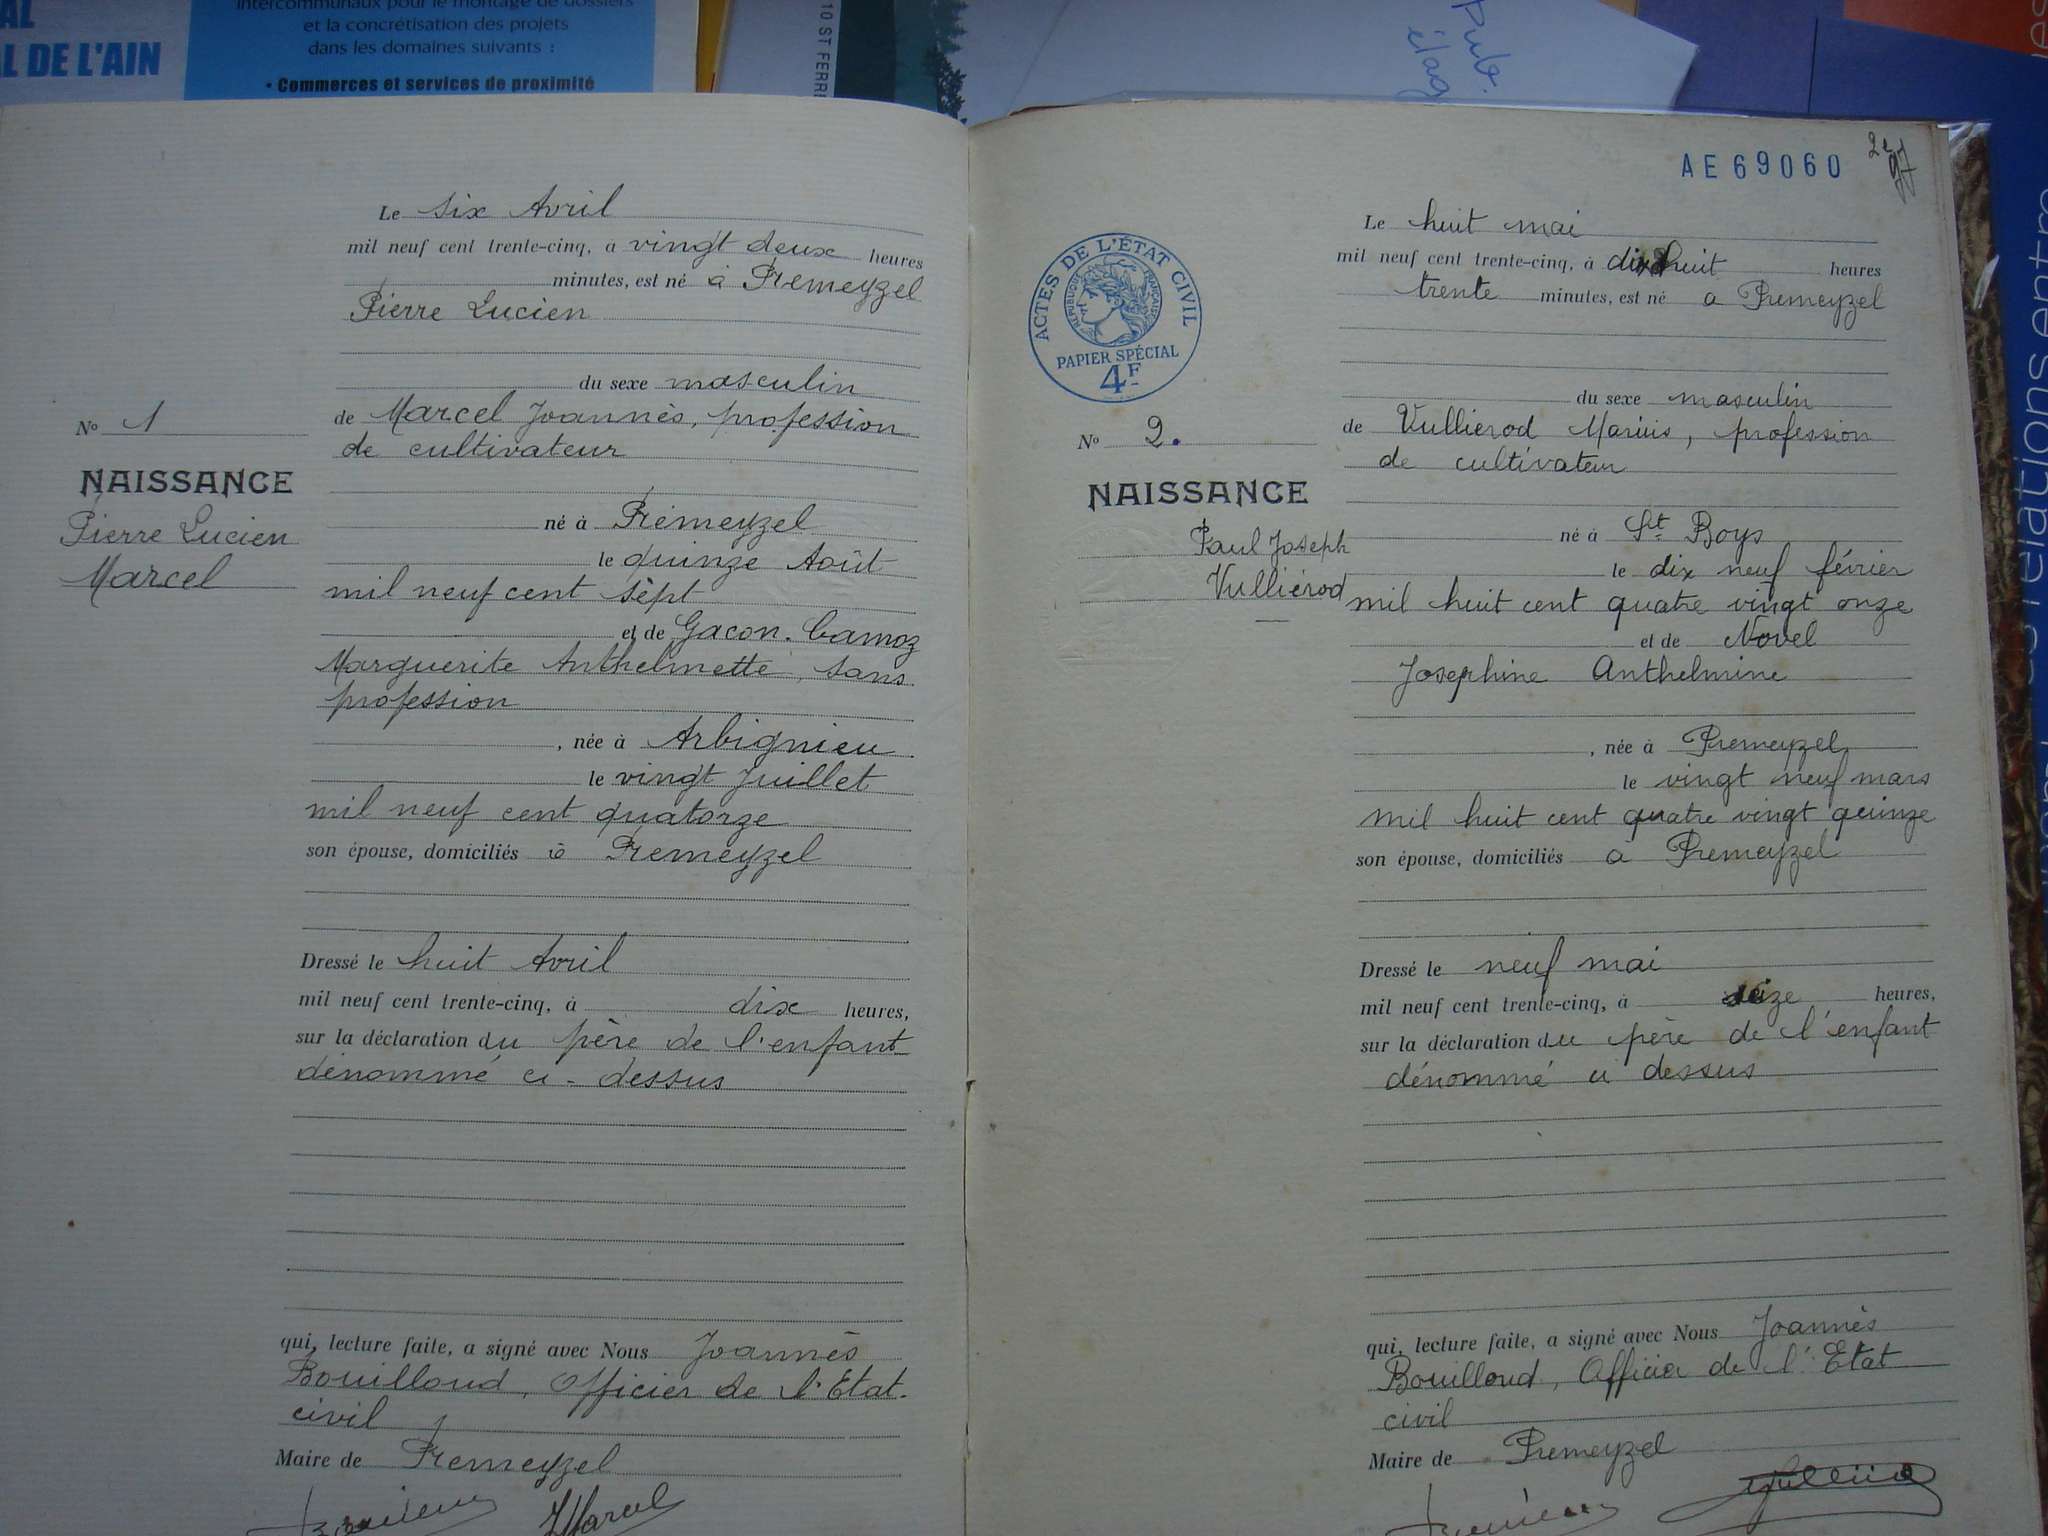 AL
L DE L'AIN
intercommunaux pour le montage de dossiers
et la concrétisation des projets
dans les domaines suivants :
• Commerces et services de proximité
10 ST FERRE
Pub.
élag
Le six Avril
mil neuf cent trente-cinq, à vingt deux heures
minutes, est né à Prémeyzel
Pierre Lucien
du sexe masculin
de Marcel Joannès, profession
de cultivateur
N° 1
NAISSANCE
Pierre Lucien
Marcel
né à Prémeyzel
le quinze Août
mil neuf cent sept
et de Gacon-Camoz
Marguerite Anthelmette, sans
profession
, née à Arbignieu
le vingt Juillet
mil neuf cent quatorze
son épouse, domiciliés à Prémeyzel
Dressé le huit Avril
mil neuf cent trente-cinq, à dix heures,
sur la déclaration du père de l'enfant
dénommé ci-dessus
qui, lecture faite, a signé avec Nous Joannès
Bouilloud, Officier de l'Etat-
civil
Maire de Prémeyzel
JMarcel
AE 69060
ACTES DE L'ÉTAT CIVIL
RÉPUBLIQUE FRANÇAISE
PAPIER SPÉCIAL
4F
Le huit mai
mil neuf cent trente-cinq, à dix huit heures
trente minutes, est né a Premeyzel
du sexe masculin
de Vulliérod Marius, profession
de cultivateur
N° 2.
NAISSANCE
Paul Joseph
Vulliérod
né à St Boys
le dix neuf février
mil huit cent quatre vingt onze
et de Novel
Josephine Anthelmine
, née à Premeyzel
le vingt neuf mars
mil huit cent quatre vingt quinze
son épouse, domiciliés a Premeyzel
Dressé le neuf mai
mil neuf cent trente-cinq, à seize heures,
sur la déclaration du père de l'enfant
dénommé ci dessus
qui, lecture faite, a signé avec Nous Joannès
Bouilloud, Officier de l'Etat
civil
Maire de Premeyzel
es relations entre